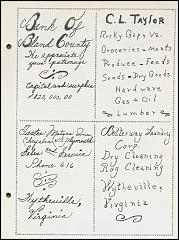 Bank Of
Bland County
We appreciate
your patronage
Capital and surplus
$125,000.00
C. L. Taylor
Rocky Gap, Va.
Groceries - Meats
Produce - Feeds
Seeds - Dry Goods
Hardware
Gas & Oil
Lumber
Motor Inc.
Chrysler & Plymouth
Sales & Service
Phone 616
Wytheville,
Virginia
Laundry
Corp.
Dry Cleaning
Rug Cleaning
Wytheville,
Virginia